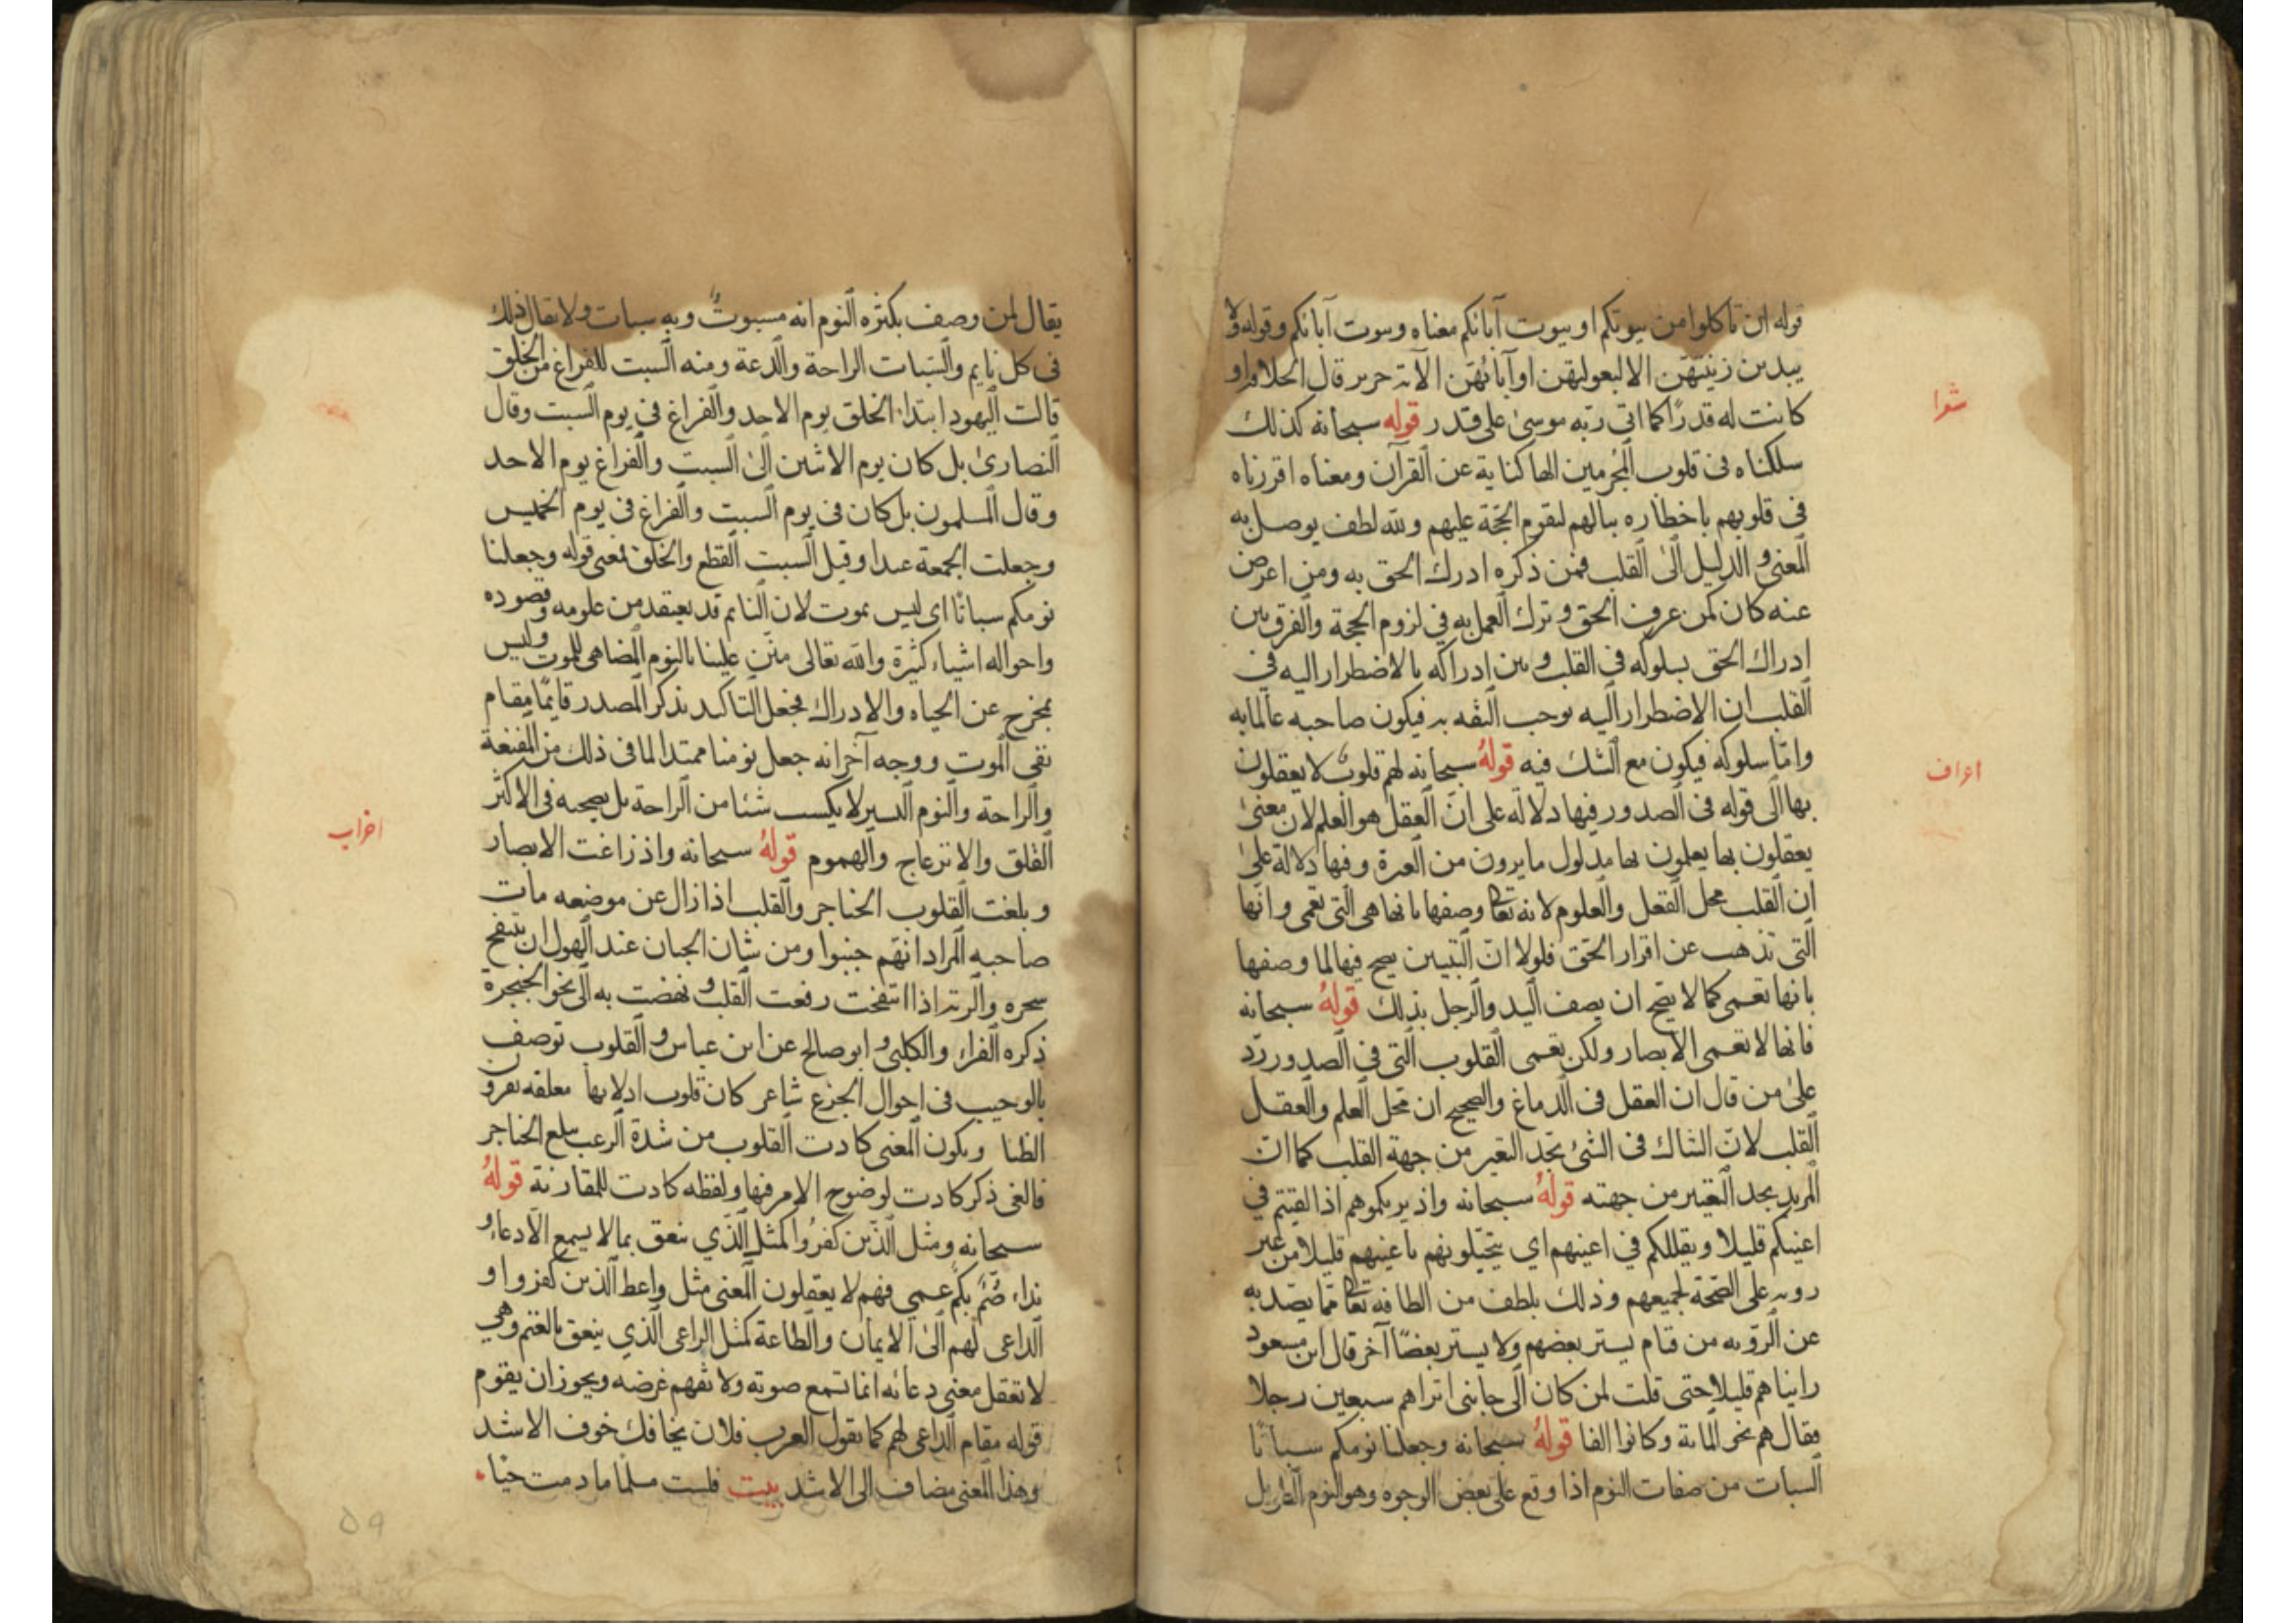 قوله ان تأكلوا من بيوتكم او بيوت آبائكم معناه وبيوت آبائكم وقوله ولا
يبدين زينتهن الا لبعولتهن او آبائهن الآية جرير قال الخلافة او
كانت له قدرًا كما اتى ربه موسى على قدر قوله سبحانه كذلك
شعرا
سلكناه فى قلوب المجرمين الها كناية عن القرآن ومعناه اقررناه
فى قلوبهم باخطاره ببالهم لتقوم الحجّة عليهم ولله لطف يوصل به
المعنى والدليل الى القلب فمن ذكره ادرك الحق به ومن اعرض
عنه كان كمن عرف الحق وترك العمل به في لزوم الحجة والفرق بين
ادراك الحق بسلوكه في القلب وبين ادراكه بالاضطرار اليه في
القلب ان الاضطرار اليه يوجب الثقه به فيكون صاحبه عالما به
وامّا سلوكه فيكون مع الشك فيه قوله سبحانه لهم قلوب لا يعقلون
اعراف
بها الى قوله فى الصدور فيها دلالة على انّ العقل هو العلم لان معنى
يعقلون بها يعلمون بها مدلول ما يرون من العبرة وفيها دلالة على
ان القلب محل الفعل والعلوم لانه تعا وصفها بانها هى التى تعمى وانها
التى تذهب عن اقرار الحق فلولا انّ التبيين يصح فيها لما وصفها
بانها تعمى كما لا يصح ان يصف اليد والرجل بذلك قوله سبحانه
فانها لا تعمى الابصار ولكن تعمى القلوب التى فى الصدور ردّ
على من قال ان العقل فى الدماغ والصحيح ان محل العلم والعقل
القلب لانّ الشاك فى الشئ يجد التغير من جهة القلب كما انّ
المريد يجد التغيير من جهته قوله سبحانه واذ يريكموهم اذ القيتم في
اعينكم قليلا ويقللكم في اعينهم اي يتخيلونهم باعينهم قليلا من غير
رويه على الصّحة لجميعهم وذلك بلطف من الطافه تعا ممّا يصد به
عن الرؤيه من قتام يستر بعضهم ولا يستر بعضًا آخر قال ابن مسعود
رايناهم قليلا حتى قلت لمن كان الى جانبى اتراهم سبعين رجلا
فقال هم نحو المائة وكانوا الفا قوله سبحانه وجعلنا نومكم سباتًا
السبات من صفات النوم اذا وقع على بعض الوجوه وهو النوم الطويل
يقال لمن وصف بكثرة النوم انه مسبوتٌ وبه سبات ولا يقال ذلك
فى كل نايم والسّبات الراحة والدعة ومنه السبت للفراغ من الخلق
قالت اليهود ابتدا الخلق يوم الاحد والفراغ في يوم السبت وقال
النصارى بل كان يوم الاثنين الى السبت والفراغ يوم الاحد
وقال المسلمون بل كان فى يوم السبت والفراغ فى يوم الخميس
وجعلت الجمعة عيدا وقيل السبت القطع والخلق فمعنى قوله وجعلنا
نومكم سباتًا اى ليس بموت لان النائم قد يفقد من علومه وقصوده
واحواله اشياء كثيرة والله تعالى متن علينا بالنوم المضاهى للموت وليس
بمخرج عن الحياه والادراك فجعل التاكيد بذكر المصدر قايمًا مقام
نفى الموت ووجه آخر انه جعل نومنا ممتدا لما فى ذلك من المنفعة
والراحة والنوم اليسير لا يكسب شئا من الراحة بل يصحبه فى الاكثر
القلق والانزعاج والهموم قوله سبحانه واذ زاغت الابصار
اخراب
وبلغت القلوب الحناجر والقلب اذا زال عن موضعه مات
صاحبه المراد انهم جبنوا ومن شان الجبان عند الهول ان ينتفخ
سحره والرئة اذا انتفخت رفعت القلب ونهضت به الى نحو الحنجرة
ذكره الفراء والكلبى وابو صالح عن ابن عباس والقلوب توصف
بالوجيب فى احوال الجزع شاعر كان قلوب ادلائها معلقه بقرون
الظبا ويكون المعنى كادت القلوب من شدة الرعب تبلغ الحناجر
فالغى ذكر كادت لوضوح الامر فيها ولفظه كادت للمقارنة قوله
سبحانه ومثل الذين كفروا كمثل الذي ينعق بما لا يسمع الّا دعاء و
نداء صُمٌّ بكم عمي فهم لا يعقلون المعنى مثل واعظ الذين كفروا و
الداعى لهم الى الايمان والطاعة كمثل الراعى الذي ينعق بالغنم وهي
لا تعقل معنى دعائه انما تسمع صوته ولا تفهم غرضه ويجوز ان يقوم
قوله مقام الداعى لهم كما تقول العرب فلان يخافك خوف الاشد
وهذا المعنى مضاف الى الاشد بيت فلست مسلّما ما دمت حيّا
٥٩